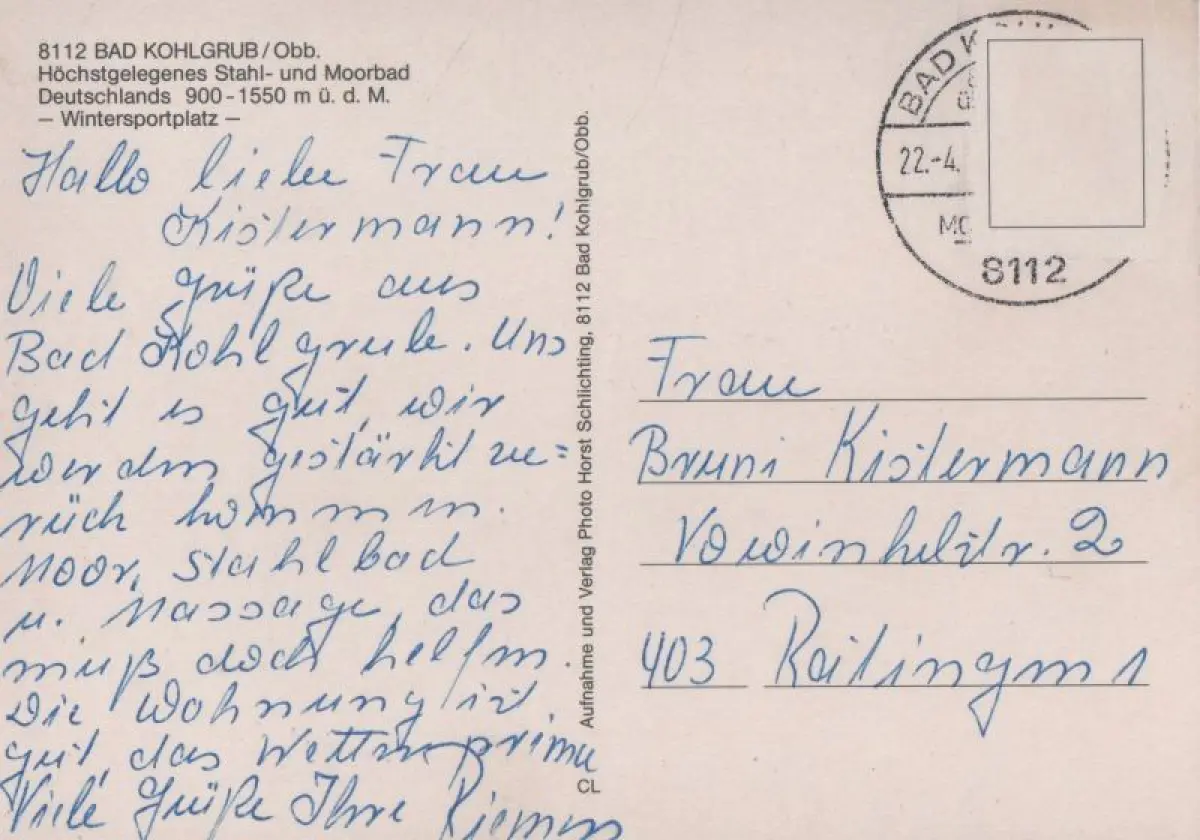 8112 BAD KOHLGRUB/Obb.
Höchstgelegenes Stahl- und Moorbad
Deutschlands 900-1550 m ü. d. M.
— Wintersportplatz —
Hallo liebe Frau
Kistermann!
Viele Grüße aus
Bad Kohlgrub. Uns
geht es gut, wir
werden gestärkt zu=
rück kommen.
Moor, Stahlbad
u. Massage, das
muß doch helfen.
Die Wohnung ist
gut, das Wetter prima
Viele Grüße Ihre
Aufnahme und Verlag Photo Horst Schlichting, 8112 Bad Kohlgrub/Obb.
CL
BAD K
22.-4.
8112
Frau
Bruni Kistermann
2
403 Ratingen 1